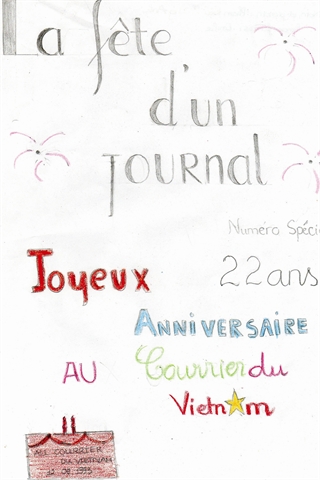 La fête
d'un
JOURNAL
Numéro Spécia
Joyeux
22 ans
ANNIVERSAIRE
AU Courrier du
Vietnam
AU COURRIER
DU VIETNAM